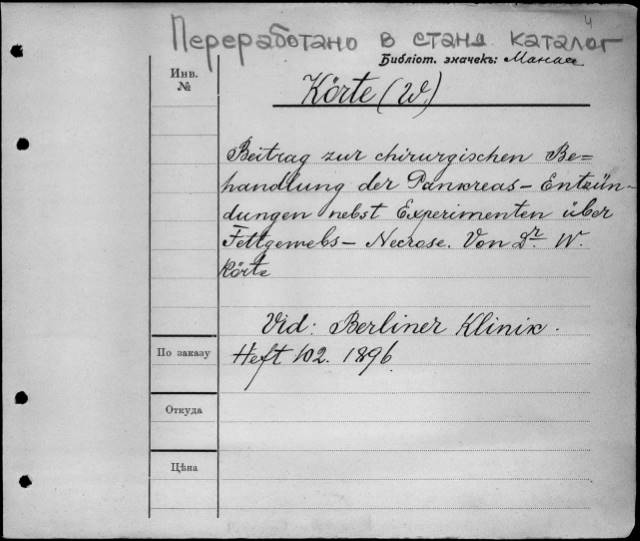 4
Переработано в станд. каталог
Библіот. значекъ: Манасс
Инв.
№
Körte (W.)
Beitrag zur chirurgischen Be=
handlung der Pankreas-Entzün-
dungen nebst Experimenten über
Fettgewebs-Necrose. Von Dr. W.
Körte
Vid: Berliner Klinik.
По заказу
Heft 102. 1896.
Откуда
Цѣна